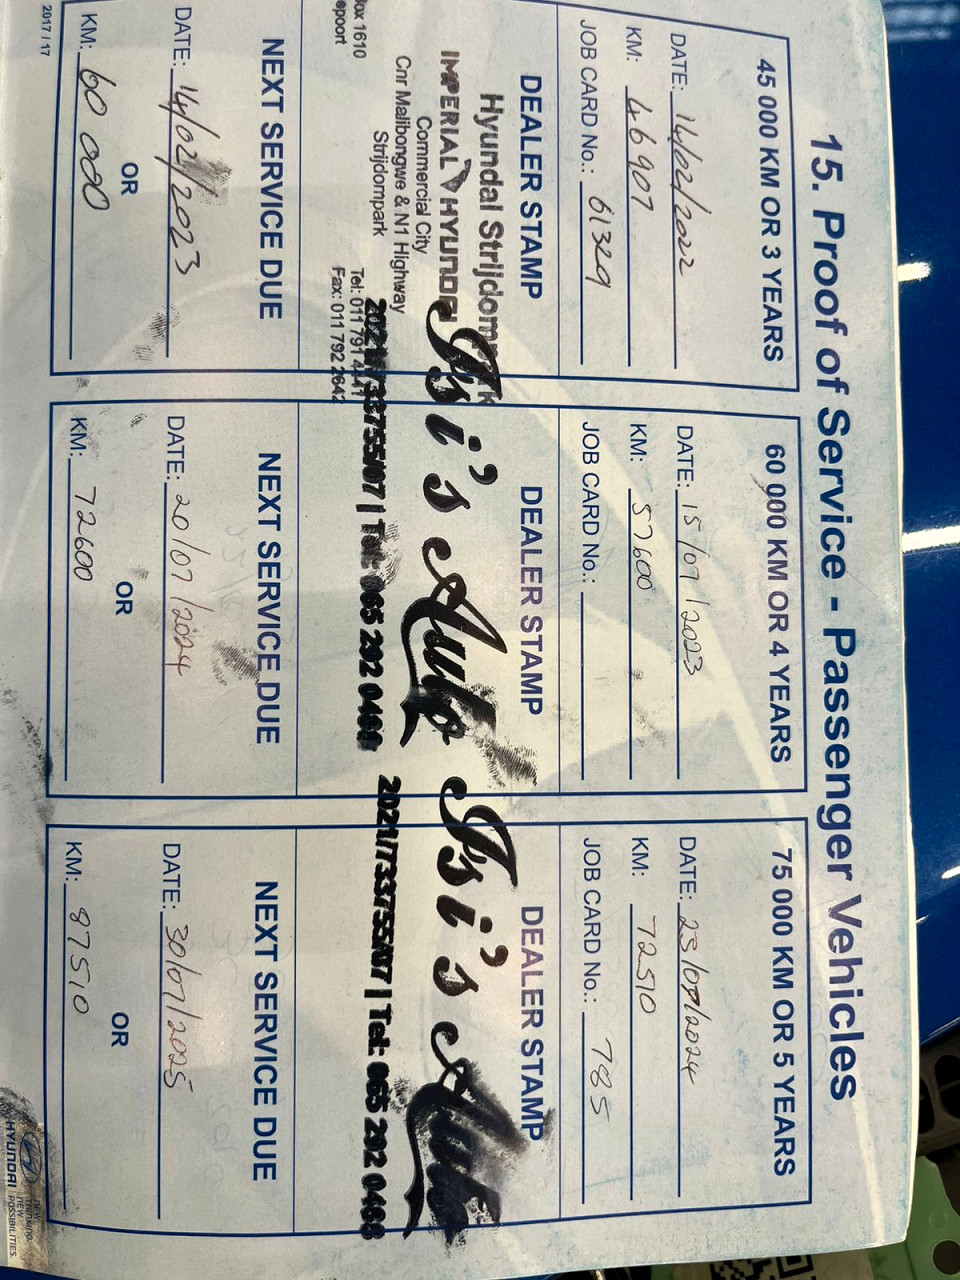 15. Proof of Service - Passenger Vehicles
45 000 KM OR 3 YEARS
DATE: 14/02/2022
KM: 46907
JOB CARD No.: 61329
DEALER STAMP
Hyundai Strijdom
IMPERIAL HYUNDAI
Commercial City
Cnr Malibongwe & N1 Highway
Strijdompark
Tel: 011 791 4441
Fax: 011 792 2642
ox 1610
epoort
NEXT SERVICE DUE
DATE: 14/02/2023
OR
KM: 60 000
2017 / 17
60 000 KM OR 4 YEARS
DATE: 15/07/2023
KM: 57600
JOB CARD No.:
DEALER STAMP
Isi's Auto
| Tel: 065 292 0468
NEXT SERVICE DUE
DATE: 20/07/2024
OR
KM: 72600
75 000 KM OR 5 YEARS
DATE: 23/07/2024
KM: 72510
JOB CARD No.: 785
DEALER STAMP
Isi's Auto
2021/733755/07 | Tel: 065 292 0468
NEXT SERVICE DUE
DATE: 30/07/2025
OR
KM: 87510
HYUNDAI
NEW
THINKING.
NEW
POSSIBILITIES.